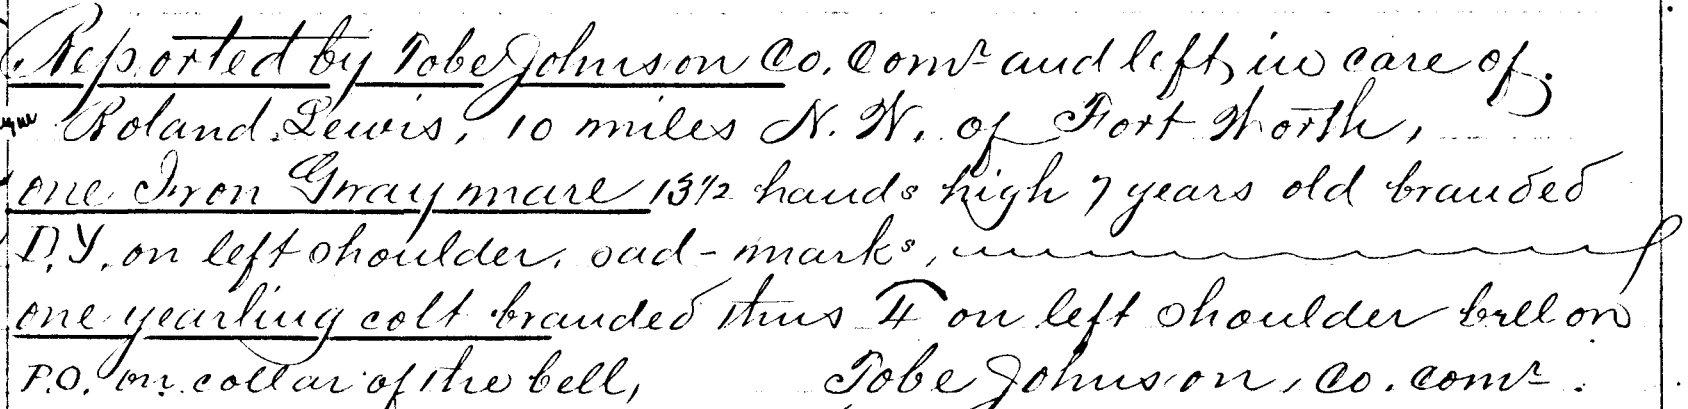 Reported by Tobe Johnson Co. Comr and left in care of.
Roland Lewis, 10 miles N. W. of Fort Worth,
one Iron Gray mare 13 1/2 hands high 7 years old branded
D.Y. on left shoulder, sad-marks,
one yearling colt branded thus 4 on left shoulder bell on
P.O. on collar of the bell, Tobe Johnson, Co. comr.